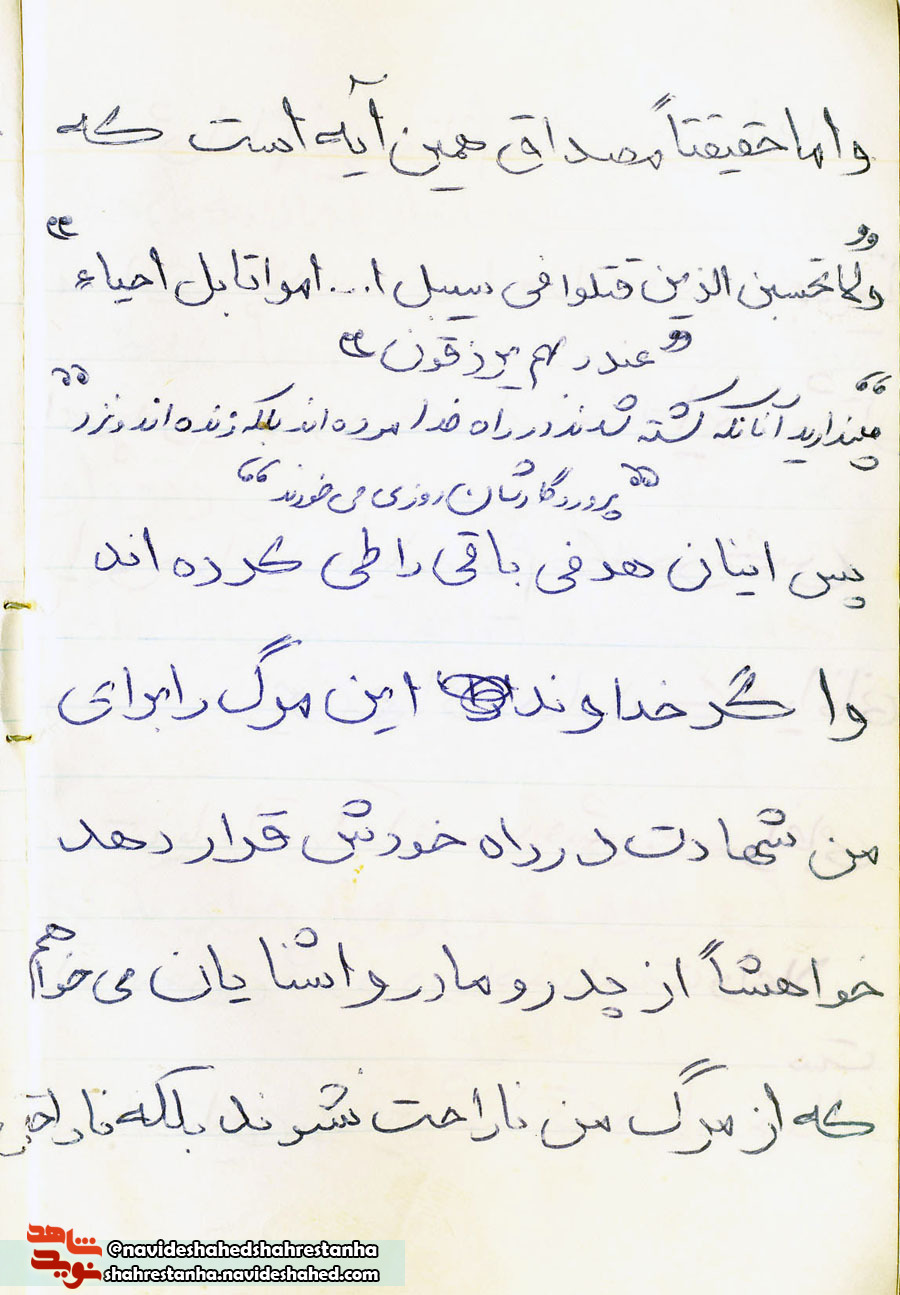 واما حقیقتاً مصداق همین آیه است که
"ولا تحسبن الذین قتلوا فی سبیل ا... امواتا بل احیاء"
"عند ربهم یرزقون"
"مپندارید آنانکه کشته شدند در راه خدا مرده اند بلکه زنده اند و نزد"
"پروردگارشان روزی می خورند"
پس اینان هدفی باقی را طی کرده اند
واگر خداوند این مرگ را برای
من شهادت در راه خودش قرار دهد
خواهشاً از پدر و مادر و اشنایان می خواهم
که از مرگ من ناراحت نشوند بلکه
شاهد
نوید
@navideshahedshahrestanha
shahrestanha.navideshahed.com